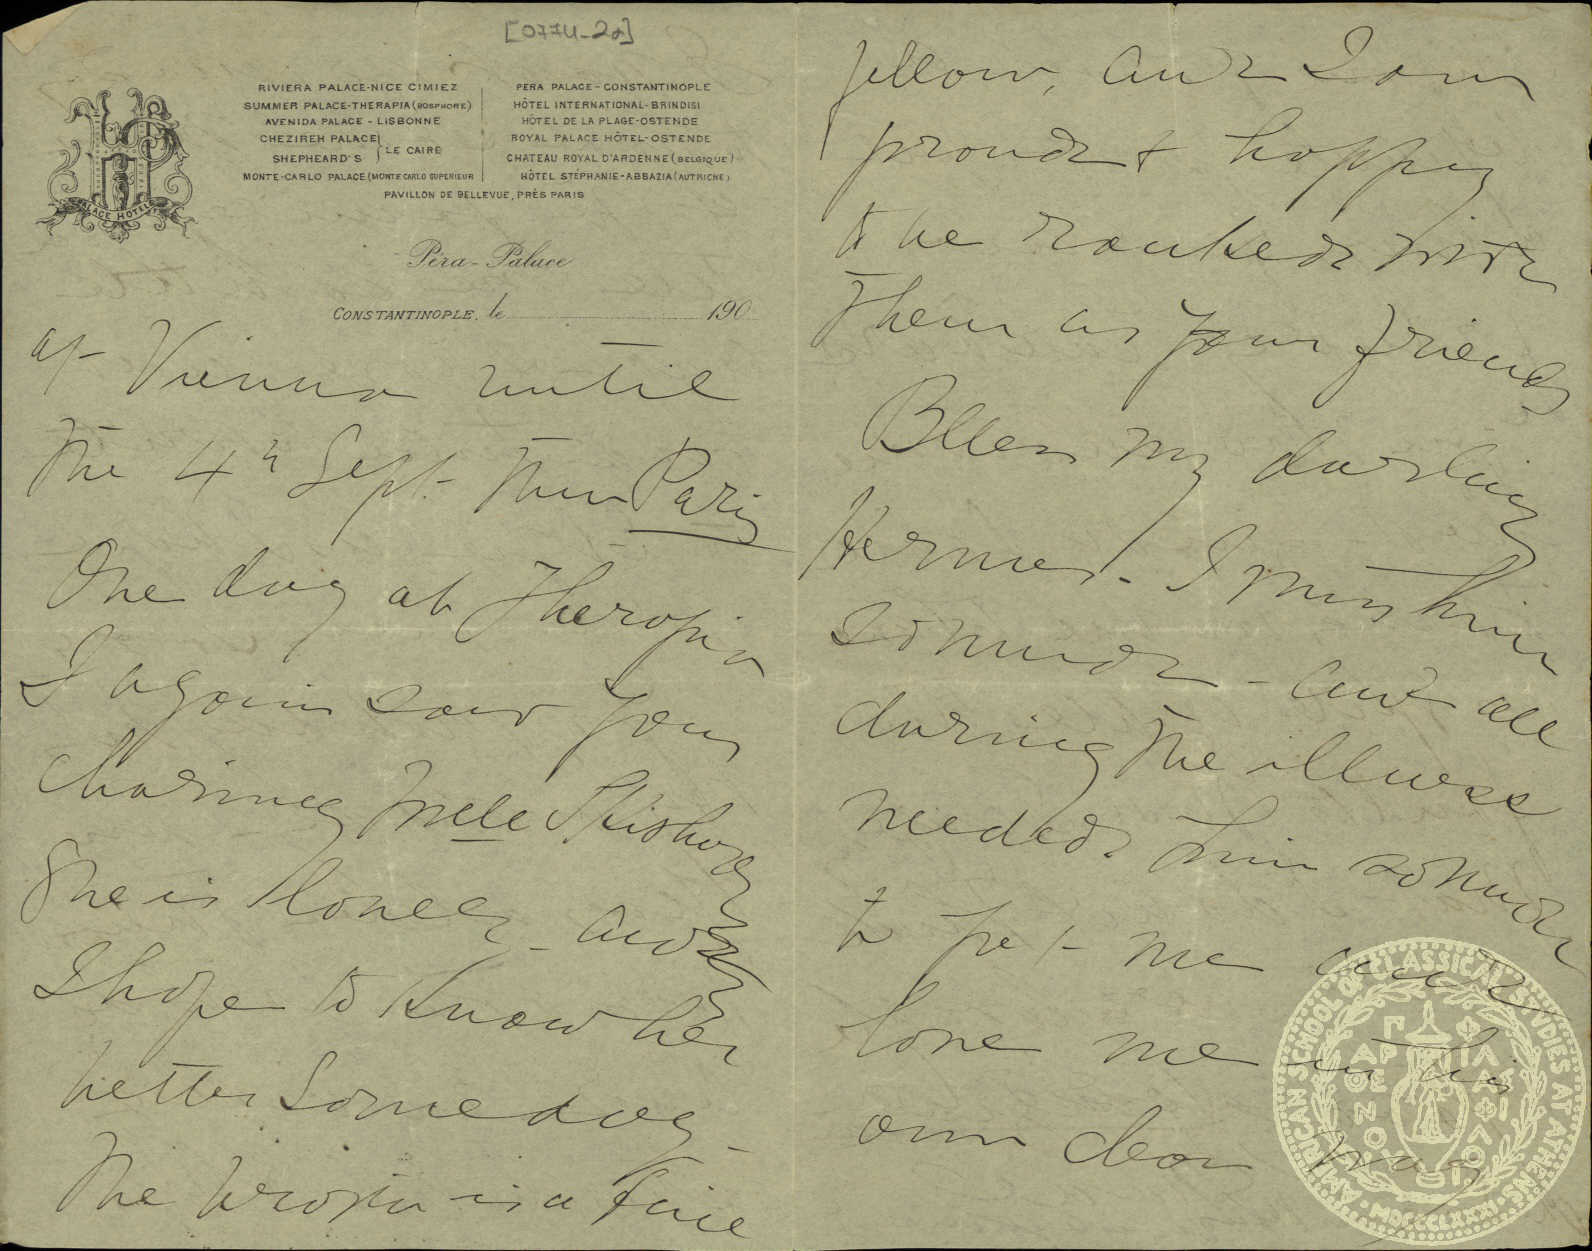 [0774-2a]
RIVIERA PALACE-NICE CIMIEZ
SUMMER PALACE-THERAPIA (BOSPHORE)
AVENIDA PALACE - LISBONNE
GHEZIREH PALACE
SHEPHEARD'S } LE CAIRE
MONTE-CARLO PALACE (MONTE CARLO SUPERIEUR
PERA PALACE - CONSTANTINOPLE
HÔTEL INTERNATIONAL-BRINDISI
HÔTEL DE LA PLAGE-OSTENDE
ROYAL PALACE HÔTEL-OSTENDE
CHATEAU ROYAL D'ARDENNE (BELGIQUE)
HÔTEL STÉPHANIE-ABBAZIA (AUTRICHE)
PAVILLON DE BELLEVUE, PRÈS PARIS
PALACE HOTELS
Péra-Palace
CONSTANTINOPLE, le 190
at Vienna until
the 4th Sept. then Paris
One day at Therapia
I again saw your
charming Melle
She is lonely - and
I hope to know her
better someday -
The brother is a fine
fellow, and I am
proud & happy
to be ranked with
them as your friends
Bless my darling
Hermes - I miss him
so much - and all
during the illness
needed him so much
to pet me and
love me in his
own dear way
AMERICAN SCHOOL OF CLASSICAL STUDIES AT ATHENS
MDCCCLXXXI
ΠΑΡΘΕΝΟΥ
ΦΙΛΑΣ ΦΙΛΟΙ